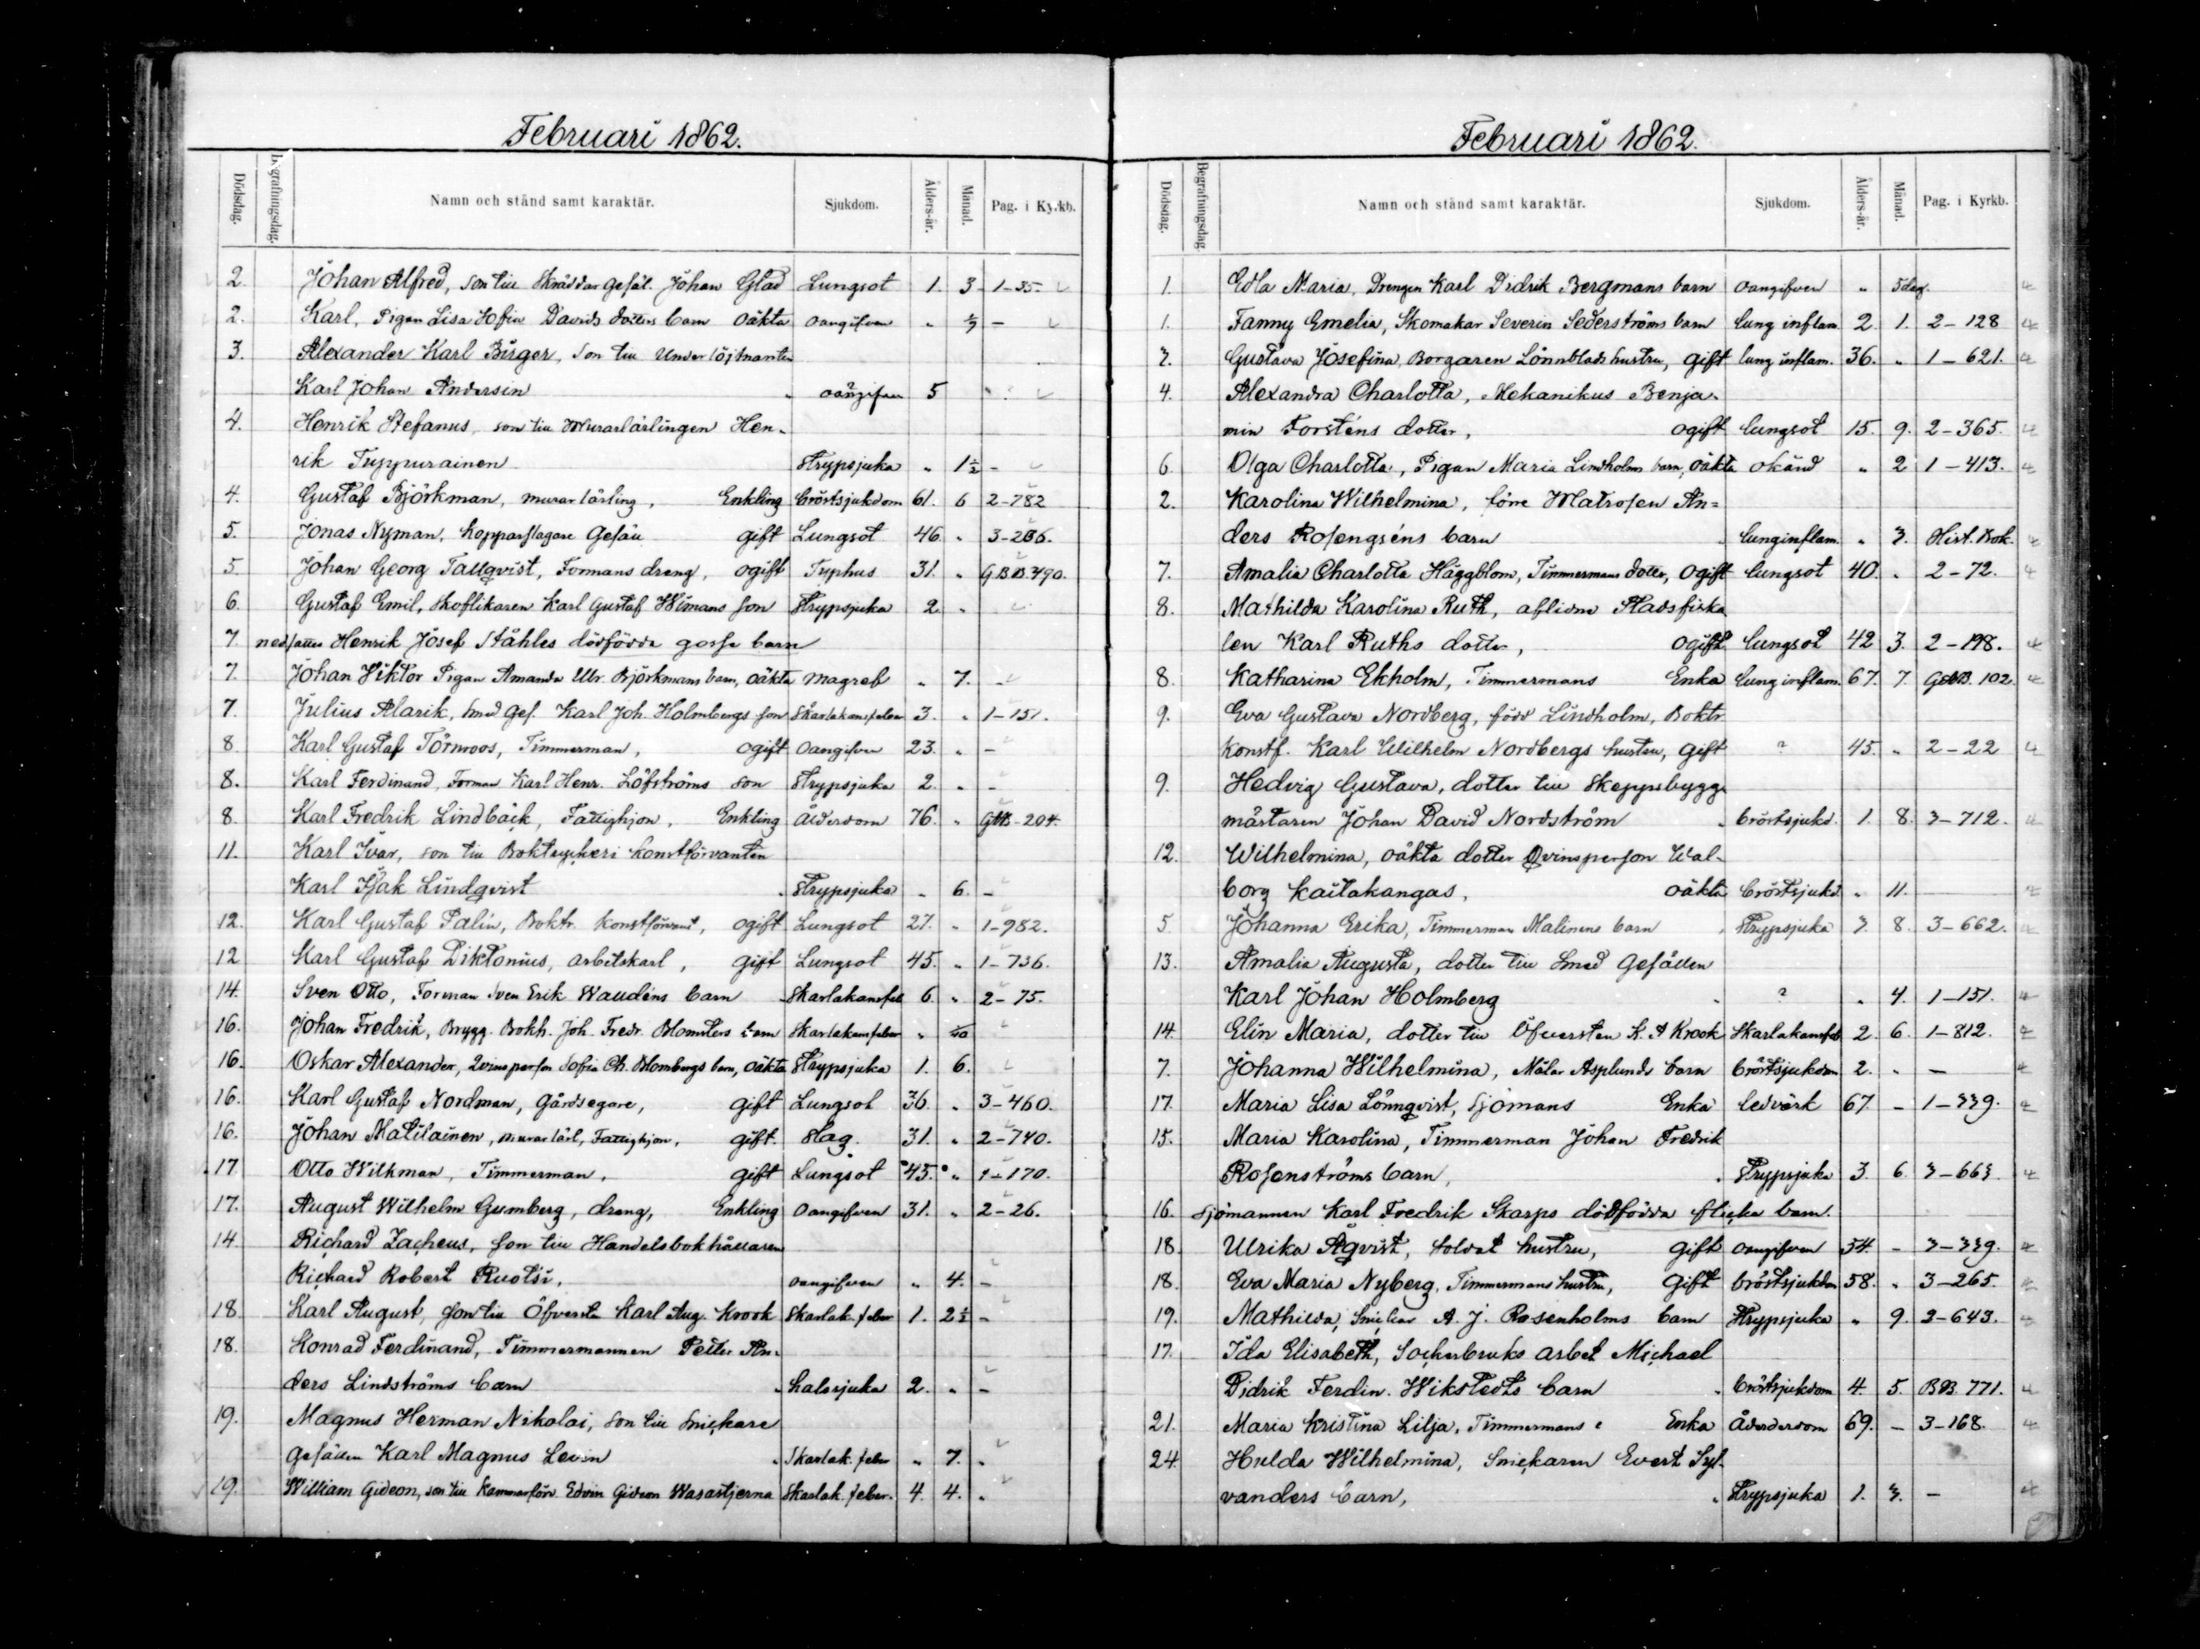 Februari 1862.
Dödsdag. Begrafningsdag. Namn och stånd samt karaktär. Sjukdom. Ålders-år. Månad. Pag. i Kyrkb.
2. Johan Alfred, son till Skräddar gesäl. Johan Glad Lungsot 1. 3 1-35.
2. Karl, Pigan Lisa Sofia Davids dotters barn oäkta oangifven " -
3. Alexander Karl Birger, son till Underlöjtnanten
Karl Johan Andersin " oangifven 5 "
4. Henrik Stefanus, son till Murarlärlingen Hen-
rik Tuppurainen Strypsjuka " 1½ -
4. Gustaf Björkman, murarlärling, Enkling bröstsjukdom 61. 6 2-782
5. Jonas Nyman, Kopparslagare Gesäll gift Lungsot 46 " 3-286.
5. Johan Georg Tallqvist, Formans dreng, ogift Typhus 31. " G.B.B. 490.
6. Gustaf Emil, Skoflikaren Karl Gustaf Wimans son Strypsjuka 2. "
7. Henrik Josef Ståhles dödfödda gosse barn
7. Johan Viktor Pigan Amanda Ulr. Björkmans barn, oäkta magref " 7. -
7. Julius Alarik, Smed Ges. Karl Joh. Holmbergs son Skarlakansfeber 3. " 1-151.
8 Karl Gustaf Törnroos, Timmerman, ogift oangifven 23. " -
8. Karl Ferdinand, Forman Karl Henr. Löfströms son Strypsjuka 2. " -
8. Karl Fredrik Lindbäck, Fattighjon, Enkling Ålderdom 76. " GBB-204.
11. Karl Ivar, son till Boktryckeri konstförvanten
Karl Isak Lindqvist " Strypsjuka " 6. -
12. Karl Gustaf Palin, Boktr. konstförvant, ogift Lungsot 27. " 1-982.
12 Karl Gustaf Diktonius, arbetskarl, gift Lungsot 45. " 1-736.
14. Sven Otto, Forman Sven Erik Waudéns barn Skarlakansfeb 6. " 2-75.
16. Johan Fredrik, Brygg. Bokh. Joh. Fredr. Blomsters barn Skarlakansfeber "
16. Oskar Alexander, Qvinsperson Sofia Ch. Blombergs barn, oäkta Strypsjuka 1. 6.
16. Karl Gustaf Nordman, Gårdsegare, gift Lungsot 36. " 3-460.
16. Johan Matilainen, murarlärl, Fattighjon, gift. Slag. 31. " 2-740.
17. Otto Wilkman, Timmerman, gift Lungsot 45. " 1-170.
17. August Wilhelm Gumberg, dreng, Enkling Oangifven 31. " 2-26.
14 Richard Zacheus, son till Handelsbokhållaren
Richard Robert Ruotsi, oangifven " 4. -
18 Karl August, son till Öfversten Karl Aug. Krook Skarlak. feber 1. 2½ -
18. Konrad Ferdinand, Timmermannen Petter An-
ders Lindströms barn " halssjuka 2. " -
19. Magnus Herman Nikolai, son till Snickare
Gesällen Karl Magnus Levin " Skarlak. feber " 7. "
19. William Gideon, son till Kammarförv. Edvin Gideon Wasastjerna Skarlak. feber. 4. 4. "
Februari 1862.
Dödsdag. Begrafningsdag. Namn och stånd samt karaktär. Sjukdom. Ålders-år. Månad. Pag. i Kyrkb.
1. Edla Maria, Drengen Karl Didrik Bergmans barn oangifven " 5 dag.
1. Fanny Emelia, Skomakar Severin Sederströms barn lung inflam. 2. 1. 2-128
3. Gustava Josefina, Borgaren Lönnblads hustru, gift lung inflam. 36. " 1-621.
4. Alexandra Charlotta, Mekanikus Benja-
min Forsténs dotter, ogift lungsot 15. 9. 2-365.
6. Olga Charlotta, Pigan Maria Lindholms barn, oäkta okänd " 2 1-413.
2. Karolina Wilhelmina, förre Matrosen An=
ders Rosengréns barn lunginflam. " 3. Hist. Bok.
7. Amalia Charlotta Häggblom, Timmermans dotter, ogift lungsot 40. " 2-72.
8. Mathilda Karolina Ruth, aflidne Stadsfiska
len Karl Ruths dotter, ogift lungsot 42 3. 2-198.
8. Katharina Ekholm, Timmermans Enka lung inflam. 67. 7. GBB. 102
9. Eva Gustava Nordberg, född Lindholm, Boktr.
konstf. Karl Wilhelm Nordbergs hustru, gift ? 45. " 2-22
9. Hedvig Gustava, dotter till Skeppsbygge
mästaren Johan David Nordström " bröstsjukd. 1. 8. 3-712.
12. Wilhelmina, oäkta dotter Qvinsperson Wal-
borg Kaitakangas, oäkta bröstsjukd. " 11.
5 Johanna Erika, Timmerman Malinens barn Strypsjuka 3. 8. 3-662.
13. Amalia Augusta, dotter till Smed Gesällen
Karl Johan Holmberg " ? " 4. 1-151.
14. Elin Maria, dotter till Öfversten K. A Krook Skarlakansfeb 2. 6. 1-812.
7. Johanna Wilhelmina, Målar Asplunds barn bröstsjukdom 2. " -
17. Maria Lisa Lönnqvist, Sjömans Enka ledvärk 67. - 1-339.
15. Maria Karolina, Timmerman Johan Fredrik
Rosenströms barn, " Strypsjuka 3. 6. 3-663
16. Sjömannen Karl Fredrik Skarps dödfödda flicka barn.
18. Ulrika Åqvist, Soldat hustru, gift oangifven 54. - 3-339.
18. Eva Maria Nyberg, Timmermans hustru, Gift bröstsjukdom 58. " 3-265.
19. Mathilda, Snickar A. J. Rosenholms barn Strypsjuka " 9. 2-643.
17. Ida Elisabeth, Sockerbruks arbet Michael
Didrik Ferdin. Wikstedts barn " bröstsjukdom 4. 5. B.B. 771.
21. Maria Kristina Lilja, Timmermans Enka Ålderdom 69. - 3-168
24. Hulda Wilhelmina, Snickaren Evert Syl-
vanders barn, " Strypsjuka 1. 3. -